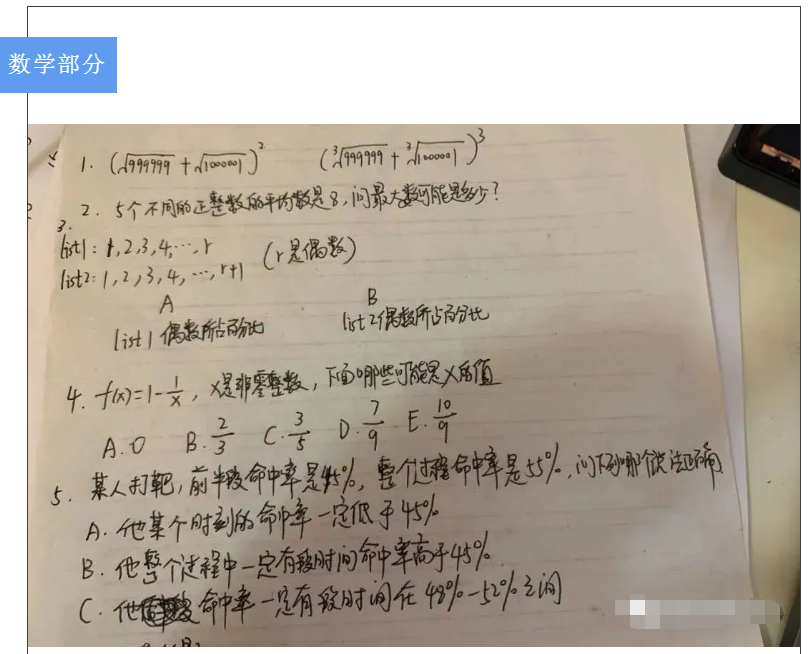 数学部分
1. (√999999 + √1000001)² (³√999999 + ³√1000001)³
2. 5个不同的正整数的平均数是8,问最大数可能是多少?
3.
list1: 1,2,3,4,…,r (r是偶数)
list2: 1,2,3,4,…,r+1
A B
list1偶数所占百分比 list2偶数所占百分比
4. f(x)=1-1/x, x是非零整数,下面哪些可能是x的值
A.0 B.2/3 C.3/5 D.7/9 E.10/9
5. 某人打靶,前半段命中率是45%,整个过程命中率是55%,问下列哪个说法正确
A. 他某个时刻的命中率一定低于45%
B. 他整个过程中一定有段时间命中率高于45%
C. 他命中率一定有段时间在48%-52%之间